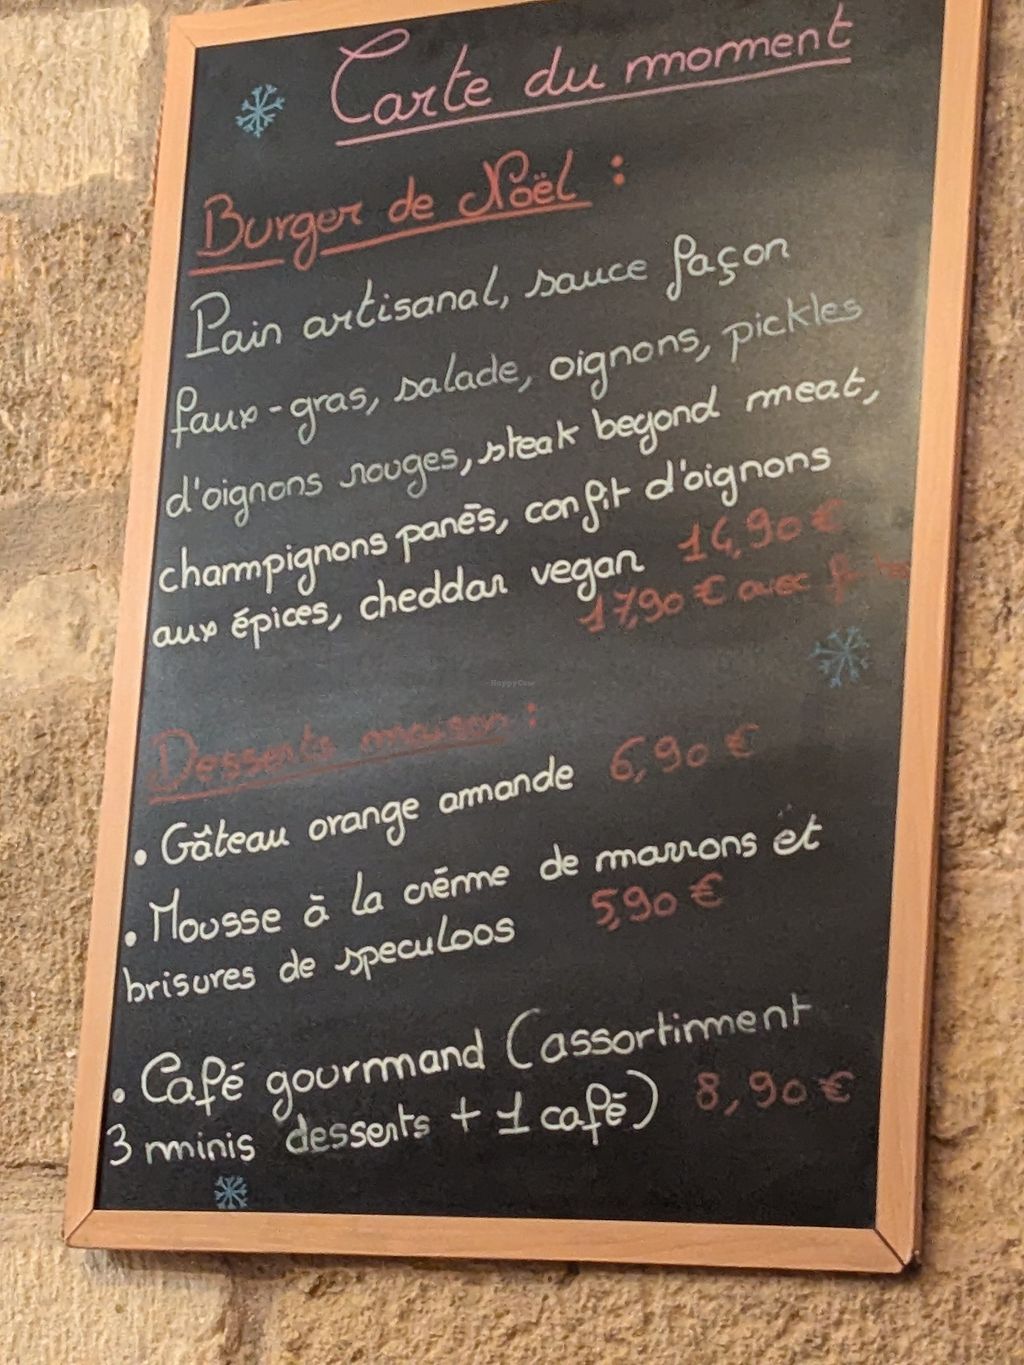 Carte du moment
Burger de Noël :
Pain artisanal, sauce façon
faux-gras, salade, oignons, pickles
d'oignons rouges, steak beyond meat,
champignons panés, confit d'oignons
aux épices, cheddar vegan 14,90 €
17,90 € avec
HappyCow
Desserts maison :
• Gâteau orange amande 6,90 €
• Mousse à la crème de marrons et
brisures de speculoos 5,90 €
• Café gourmand (assortiment
3 minis desserts + 1 café) 8,90 €